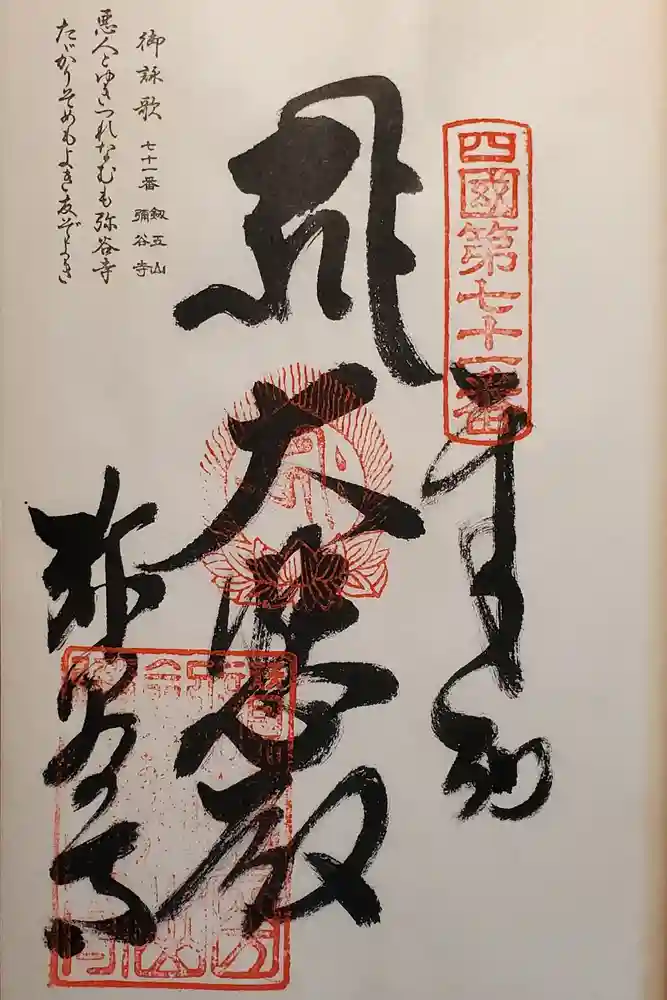 四國第七十一番
奉納
大悲殿
弥谷寺
御詠歌 七十一番 釼五山 彌谷寺
悪人とゆきつれなむも弥谷寺
たゞかりそめもよき友ぞよき